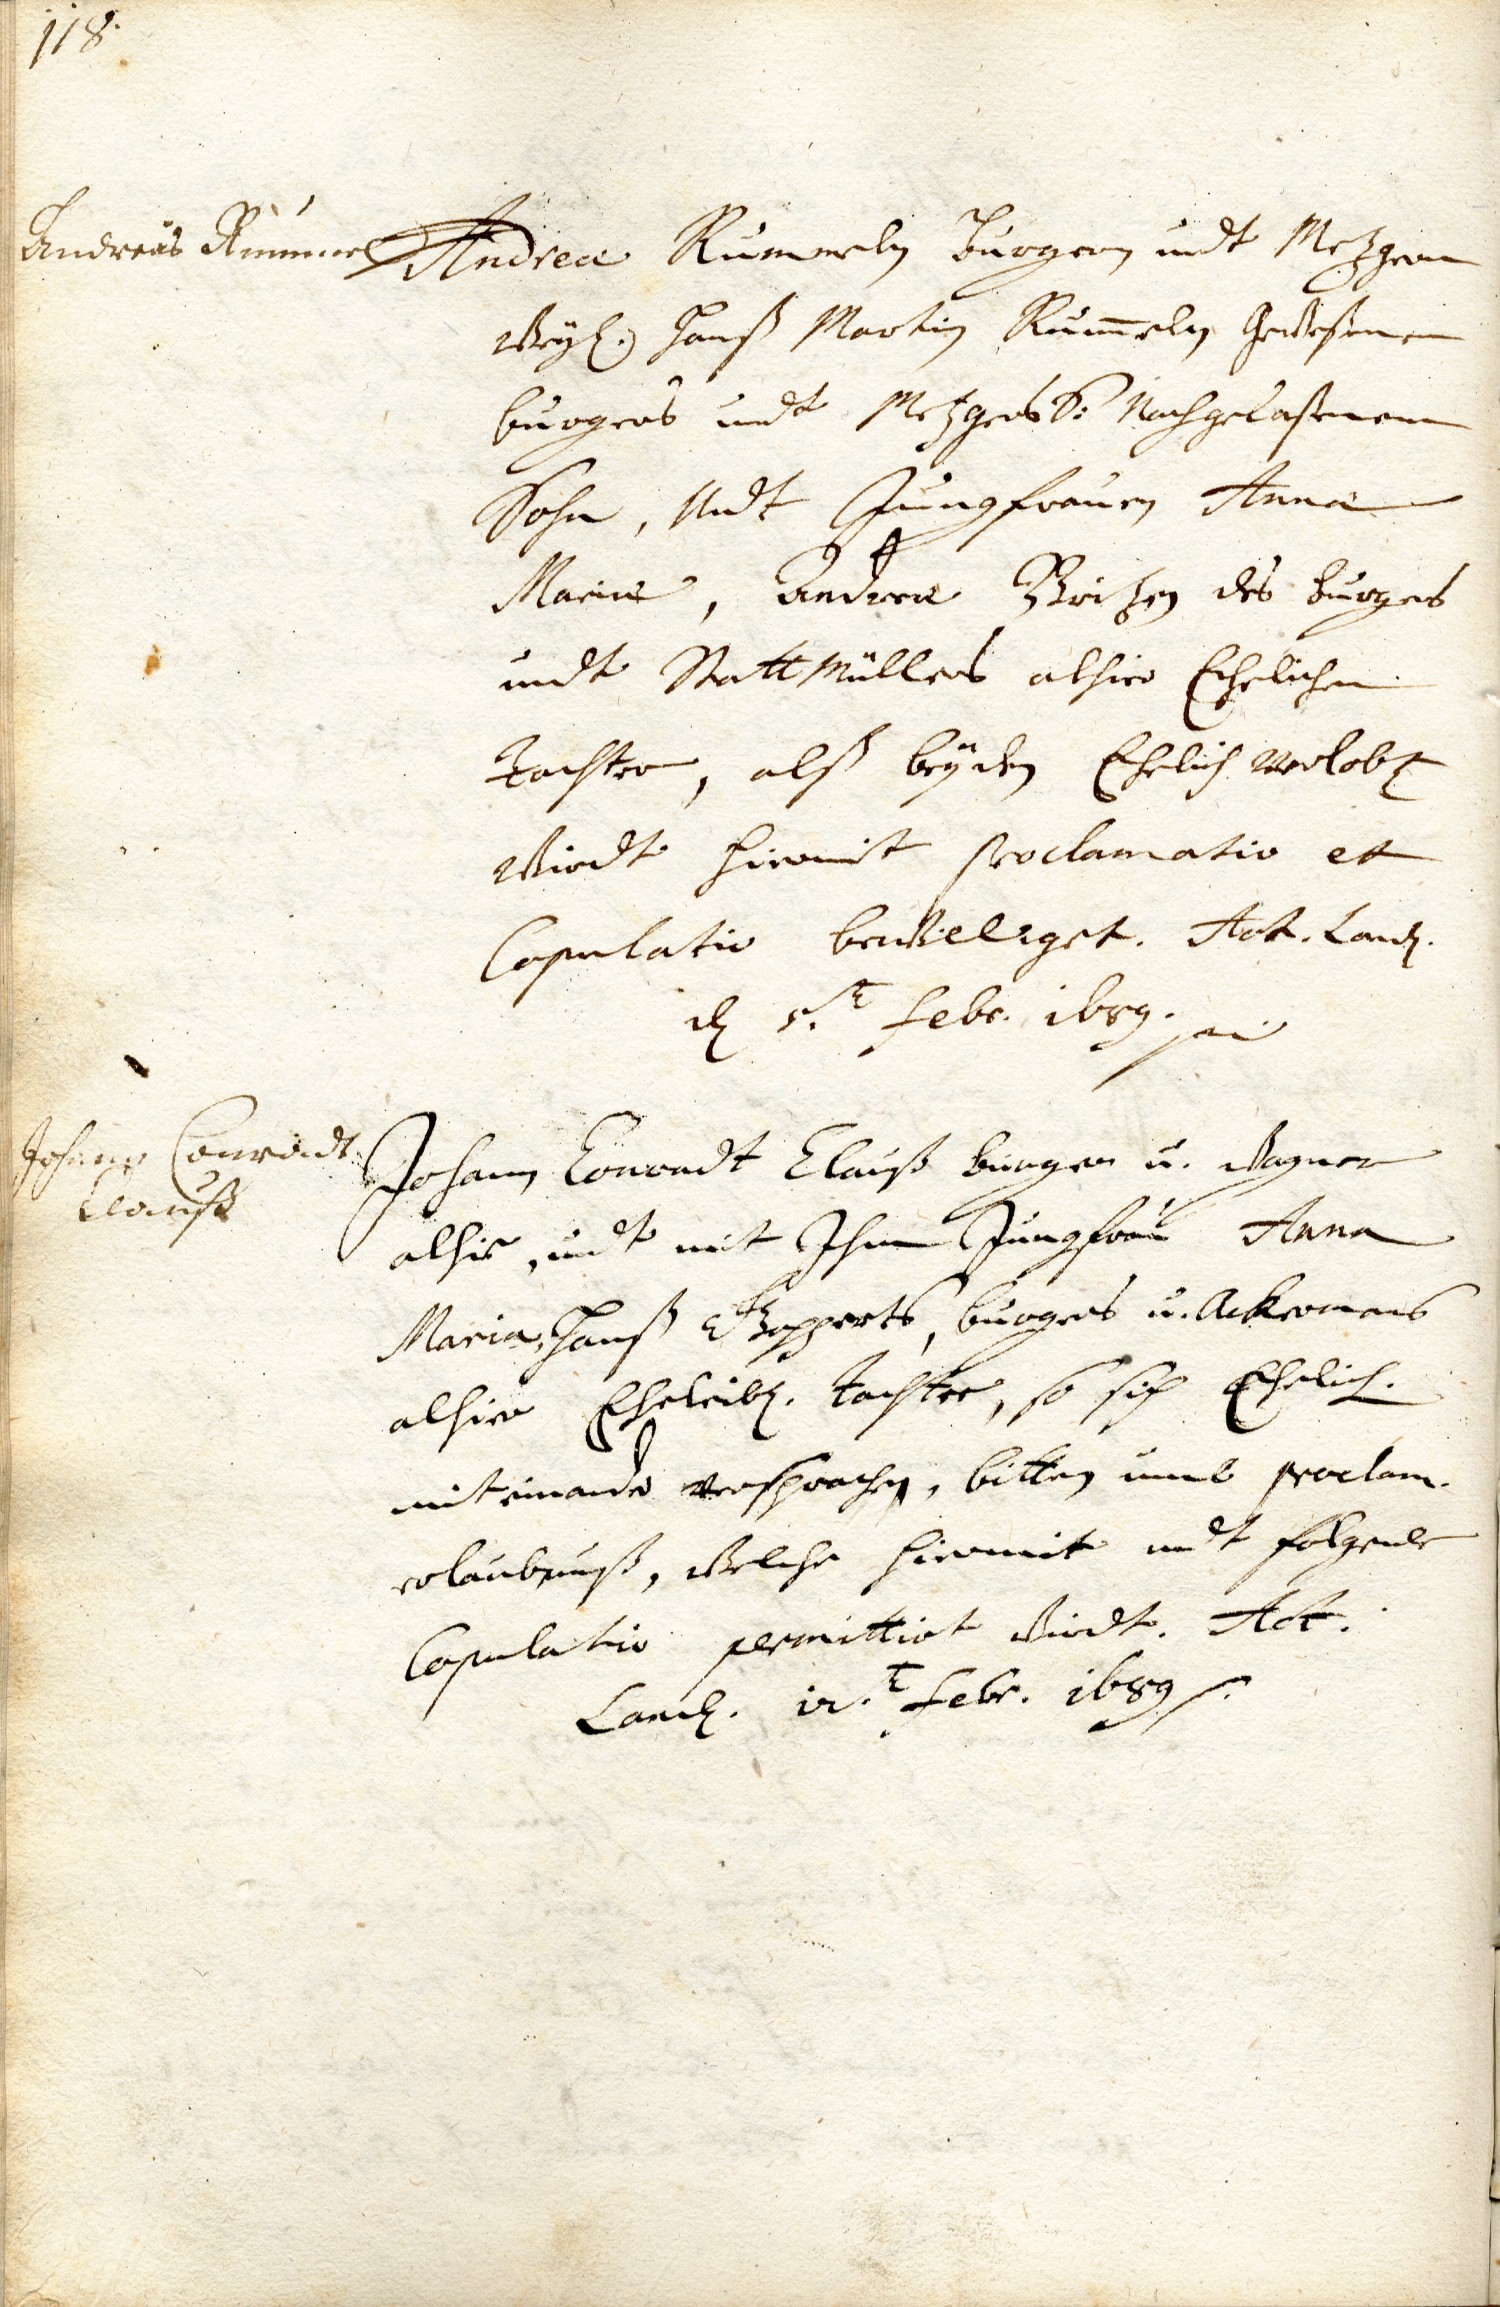 118.
Andreas Rummel
Andreæ Rummeln Burgern undt Metzgern
Weyl. Hanß Martin Rum̄eln Gewesenen
burgers undt Metzgers S: Nachgelaßenem
Sohn, Undt Jungfrauen Anna
Maria, Andreæ des burgers
undt Statt Müllers alhier Ehelichen
Tochter, alß beyden Ehelich verlobt
Wirdt hiermit proclamatio et
Copulatio bewilliget. Act. Land.
d 5.t febr. 1689.
Johann Conradt
Clauß
Johann Conradt Clauß burger u. Wagner
alhie, undt mit Ihm Jungfrau Anna
Maria, Hanß burgers u. Ackermans
alhier Eheleibl. Tochter, so sich Ehelich.
miteinander versprochen, bitten umb proclam.
erlaubnuß, Welche hiermit undt folgende
Copulatio permittirt Wirdt. Act.
Land. 12.t febr. 1689